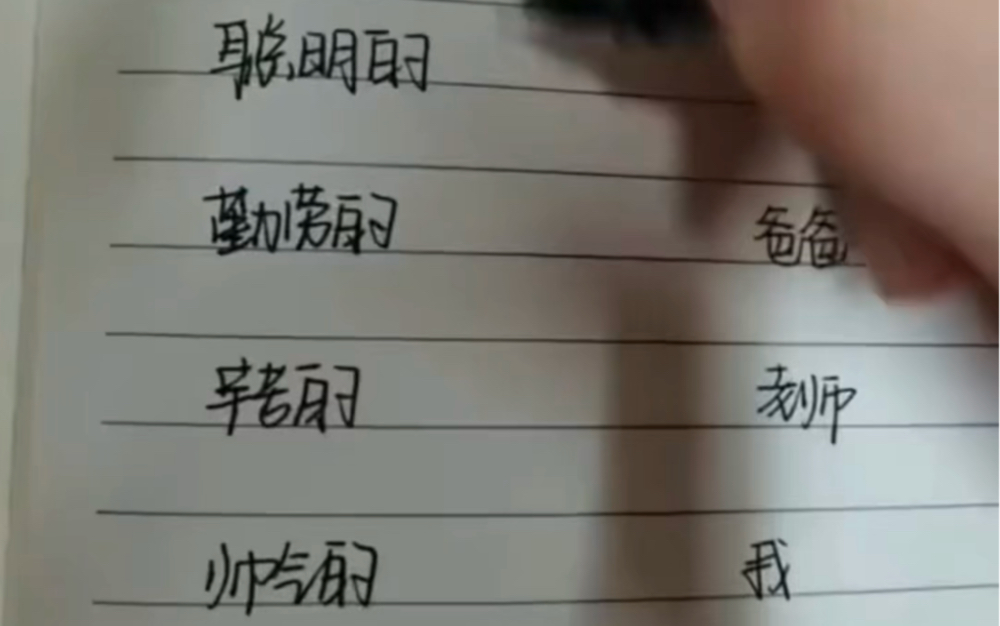 聪明的
勤劳的 爸爸
辛苦的 老师
帅气的 我